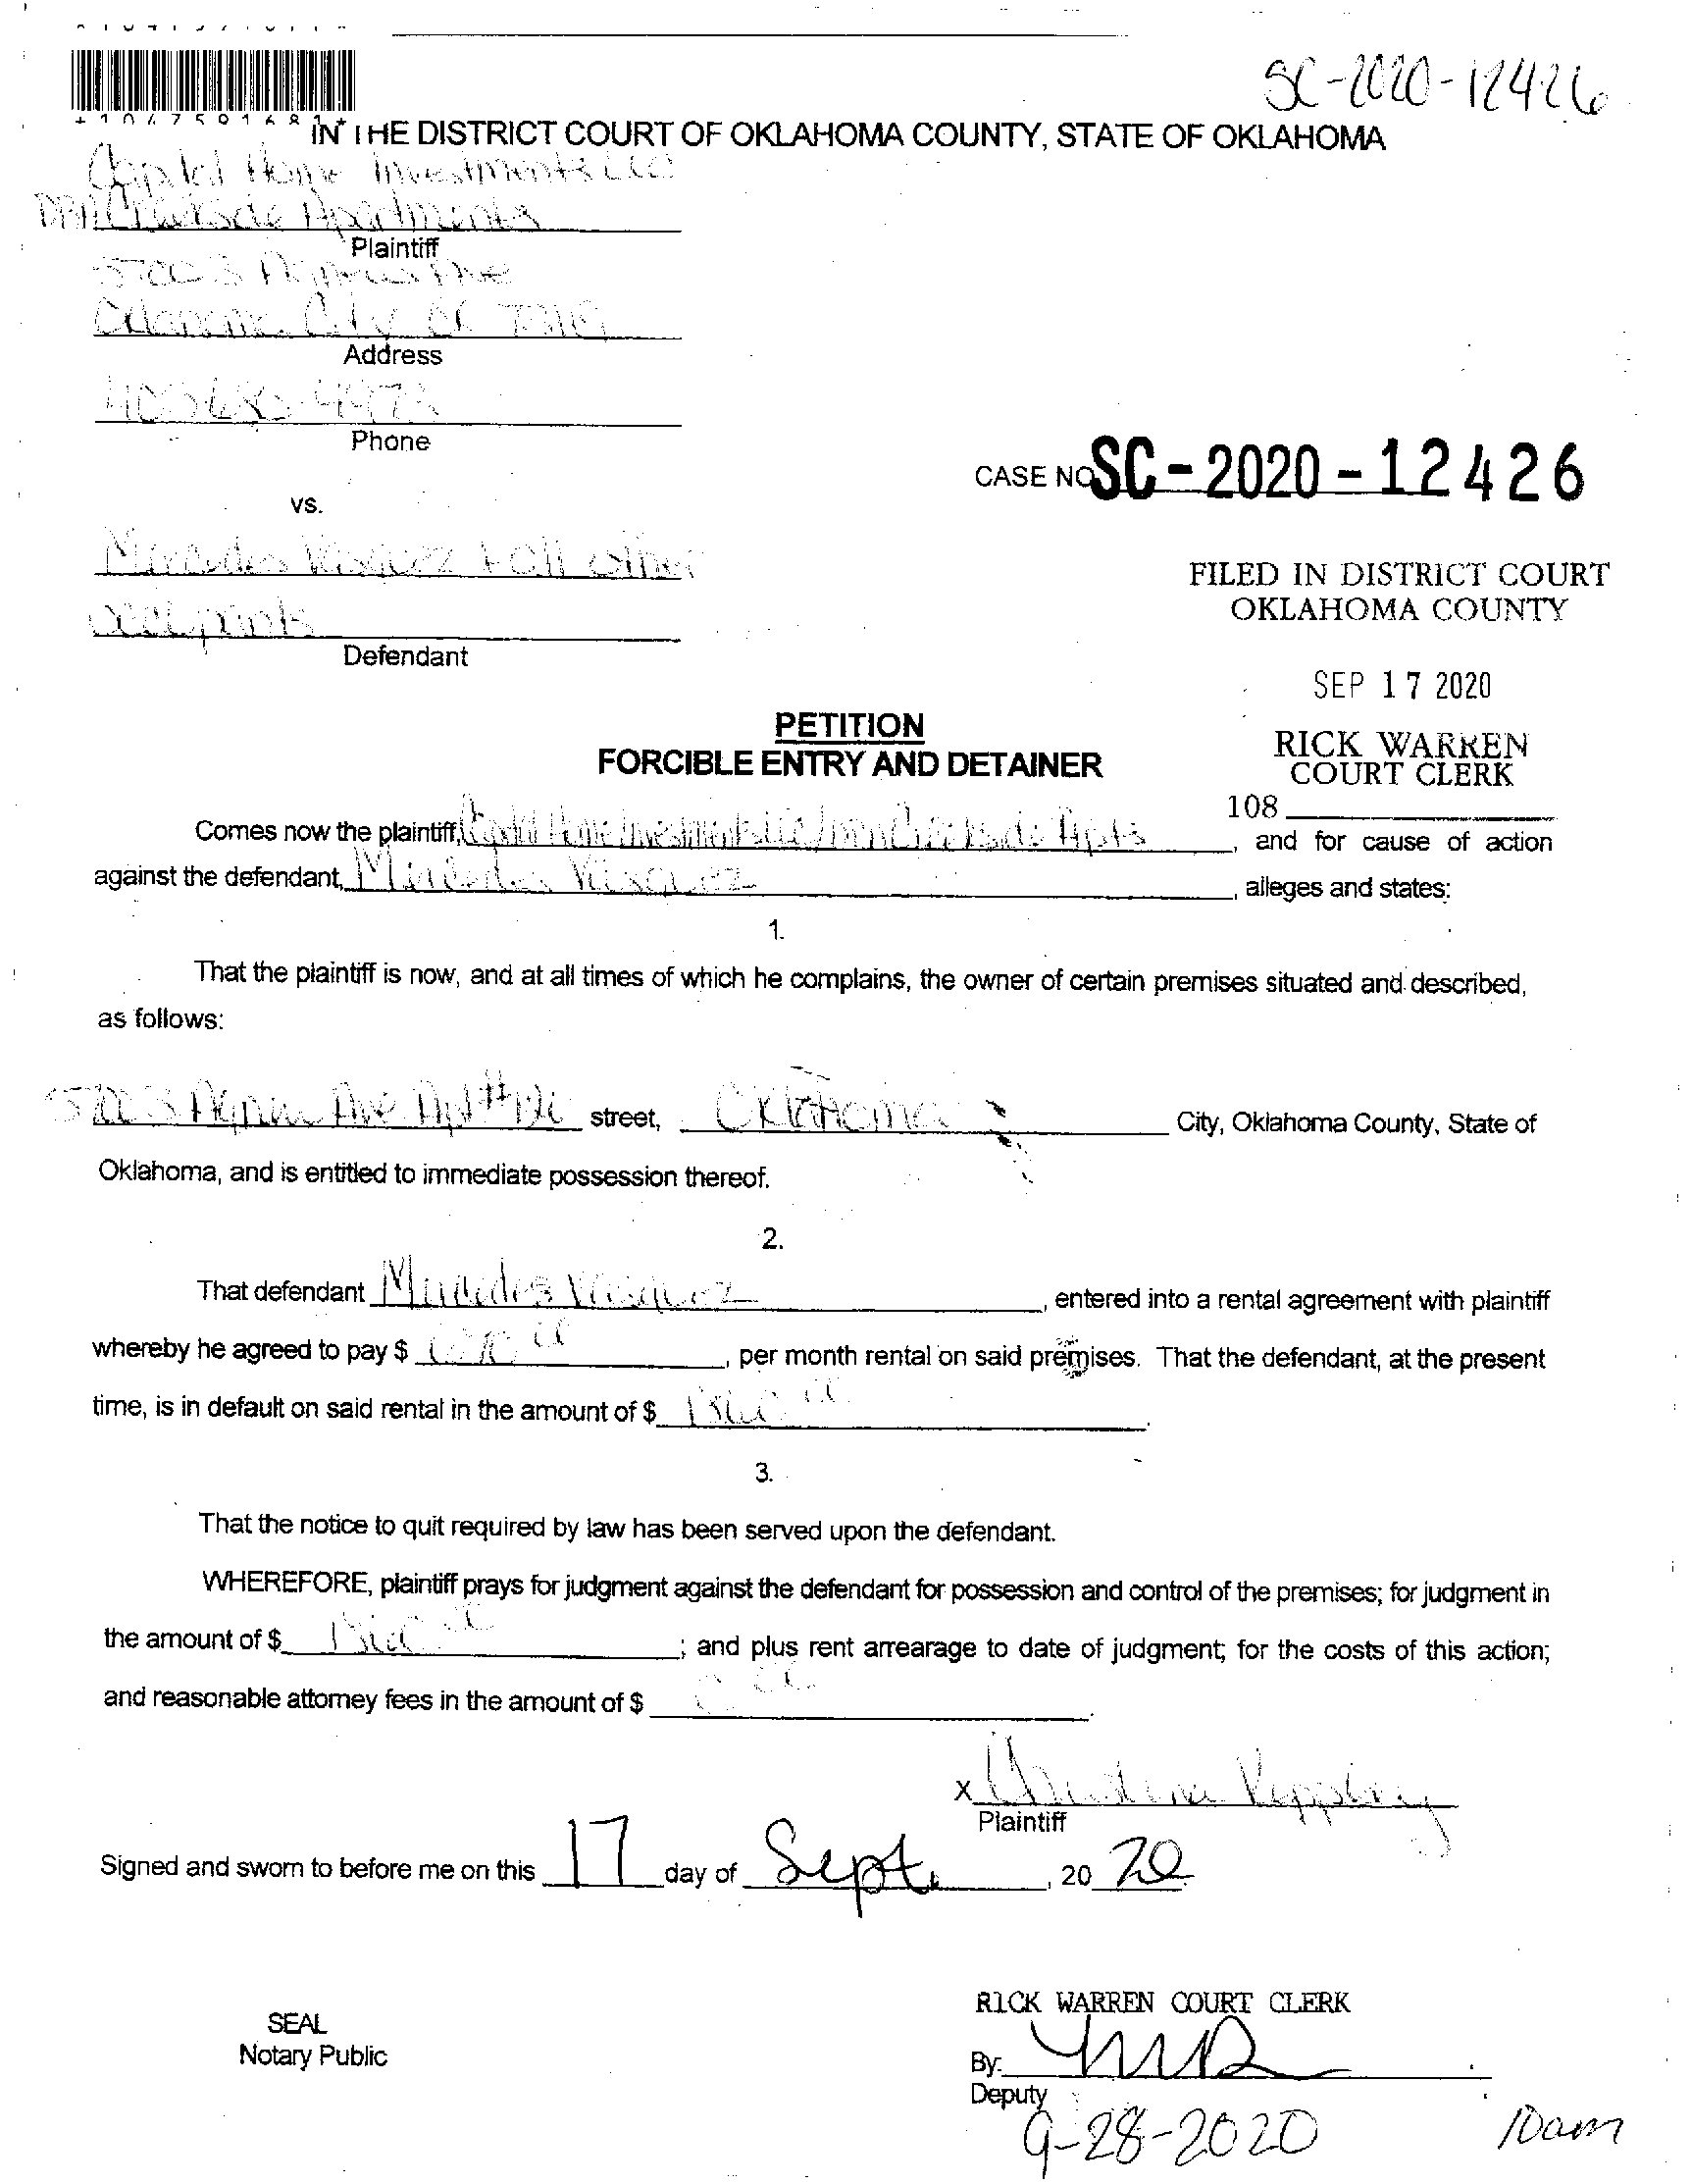 SC-2020-12426
IN THE DISTRICT COURT OF OKLAHOMA COUNTY, STATE OF OKLAHOMA
Capital Home Investments LLC
Apartments
Plaintiff
Ave
City
Address
Phone
CASE NO SC-2020-12426
vs.
Mercedes Vasquez + all other
occupants
Defendant
FILED IN DISTRICT COURT
OKLAHOMA COUNTY
SEP 17 2020
RICK WARREN
COURT CLERK
108
PETITION
FORCIBLE ENTRY AND DETAINER
Comes now the plaintiff, Capital Home Investments LLC Apts, and for cause of action
against the defendant, Mercedes Vasquez, alleges and states:
1.
That the plaintiff is now, and at all times of which he complains, the owner of certain premises situated and described,
as follows:
S Agnew Ave Apt street, Oklahoma City, Oklahoma County, State of
Oklahoma, and is entitled to immediate possession thereof.
2.
That defendant Mercedes Vasquez, entered into a rental agreement with plaintiff
whereby he agreed to pay $, per month rental on said premises. That the defendant, at the present
time, is in default on said rental in the amount of $.
3.
That the notice to quit required by law has been served upon the defendant.
WHEREFORE, plaintiff prays for judgment against the defendant for possession and control of the premises; for judgment in
the amount of $; and plus rent arrearage to date of judgment; for the costs of this action;
and reasonable attorney fees in the amount of $.
x
Plaintiff
Signed and sworn to before me on this 17 day of Sept., 20 20
RICK WARREN COURT CLERK
SEAL
Notary Public
By:
Deputy
9-28-2020 10am